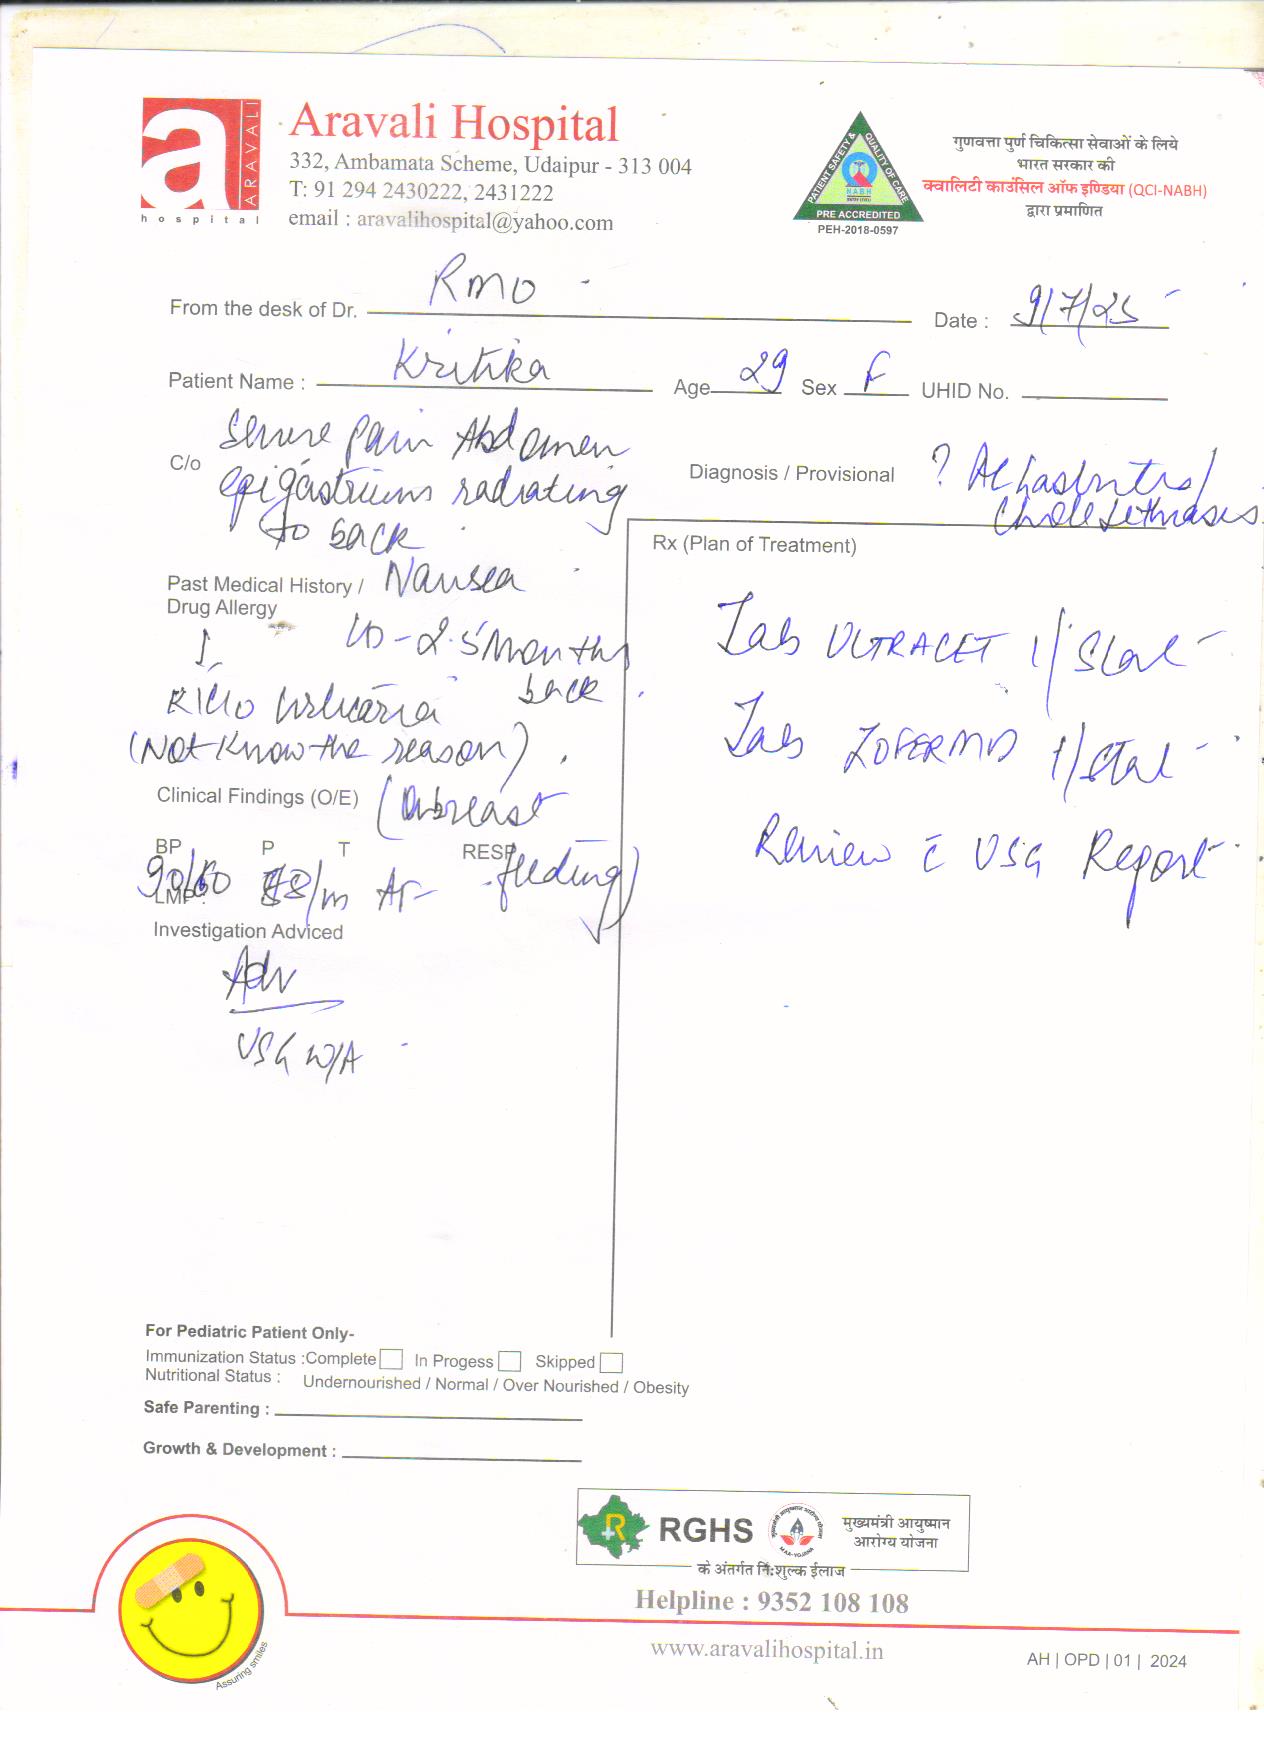 a ARAVALI
hospital
Aravali Hospital
332, Ambamata Scheme, Udaipur - 313 004
T: 91 294 2430222, 2431222
email : aravalihospital@yahoo.com
PATIENT SAFETY & QUALITY OF CARE
NABH
PRE ACCREDITED
PEH-2018-0597
गुणवत्ता पुर्ण चिकित्सा सेवाओं के लिये
भारत सरकार की
क्वालिटी काउंसिल ऑफ इण्डिया (QCI-NABH)
द्वारा प्रमाणित
From the desk of Dr. RMO Date : 9/7/25
Patient Name : Kritika Age 29 Sex F UHID No.
C/o Severe Pain Abdomen
epigastrium radiating
to back
Diagnosis / Provisional ?
Cholelithiasis
Rx (Plan of Treatment)
Past Medical History / Nausea
Drug Allergy
- 2.5 Months
back
K/C/o Urticaria
(Not Know the reason)
Clinical Findings (O/E) (On breast
feeding)
BP P T RESP
90/60 /m
LMP :
Investigation Adviced
Adv
USG W/A
Tab ULTRACET 1/Stat
Tab ZOFER MD 1/Stat
Review c̄ USG Report
For Pediatric Patient Only-
Immunization Status :Complete In Progess Skipped
Nutritional Status : Undernourished / Normal / Over Nourished / Obesity
Safe Parenting :
Growth & Development :
R RGHS मुख्यमंत्री आयुष्मान
आरोग्य योजना
के अंतर्गत नि:शुल्क ईलाज
Helpline : 9352 108 108
www.aravalihospital.in
Assuring smiles
AH | OPD | 01 | 2024